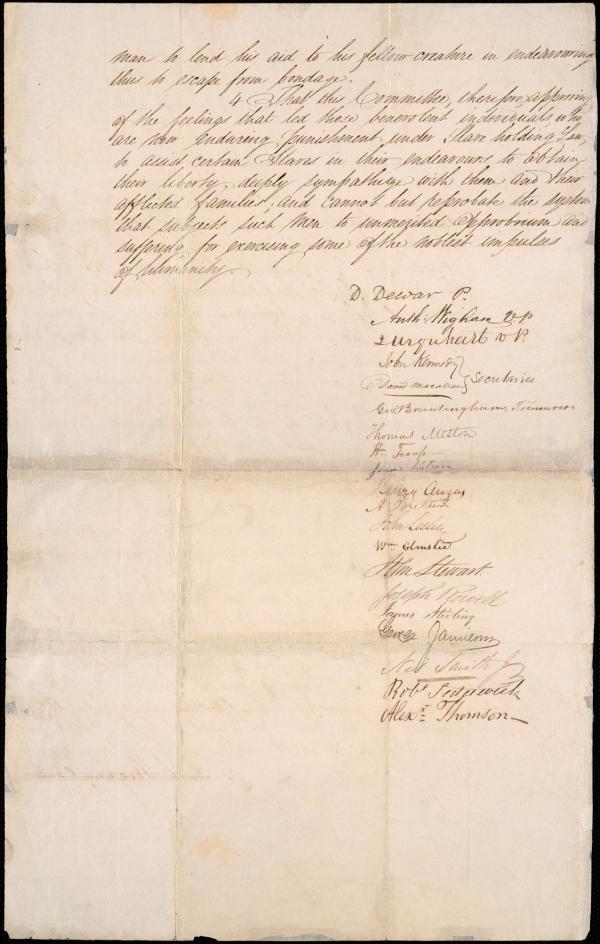 man to lend his aid to his fellow creature in endeavouring
thus to escape from bondage.
4 That this Committee, therefore, approving
of the feelings that led those benevolent individuals who
are now enduring punishment under Slave holding Law,
to assist certain Slaves in their endeavours to obtain
their liberty, deeply sympathize with them and their
afflicted families; and cannot but reprobate the system
that subjects such men to unmerited opprobrium and
suffering for exercising some of the noblest impulses
of humanity
D. Dewar P.
Anth: Wigham V.P.
Urquhart V P.
John Kennedy
David Macallan Secretaries
Geo. Brantingham, Treasurer
Thomas Meston
Wm
Henry Angus
A
John Leslie
Wm Olmsted
John Stewart
Joseph Rowell
James Stirling
George Jamieson
Neil Smith Jr
Robt Sedgewick
Alexr Thomson